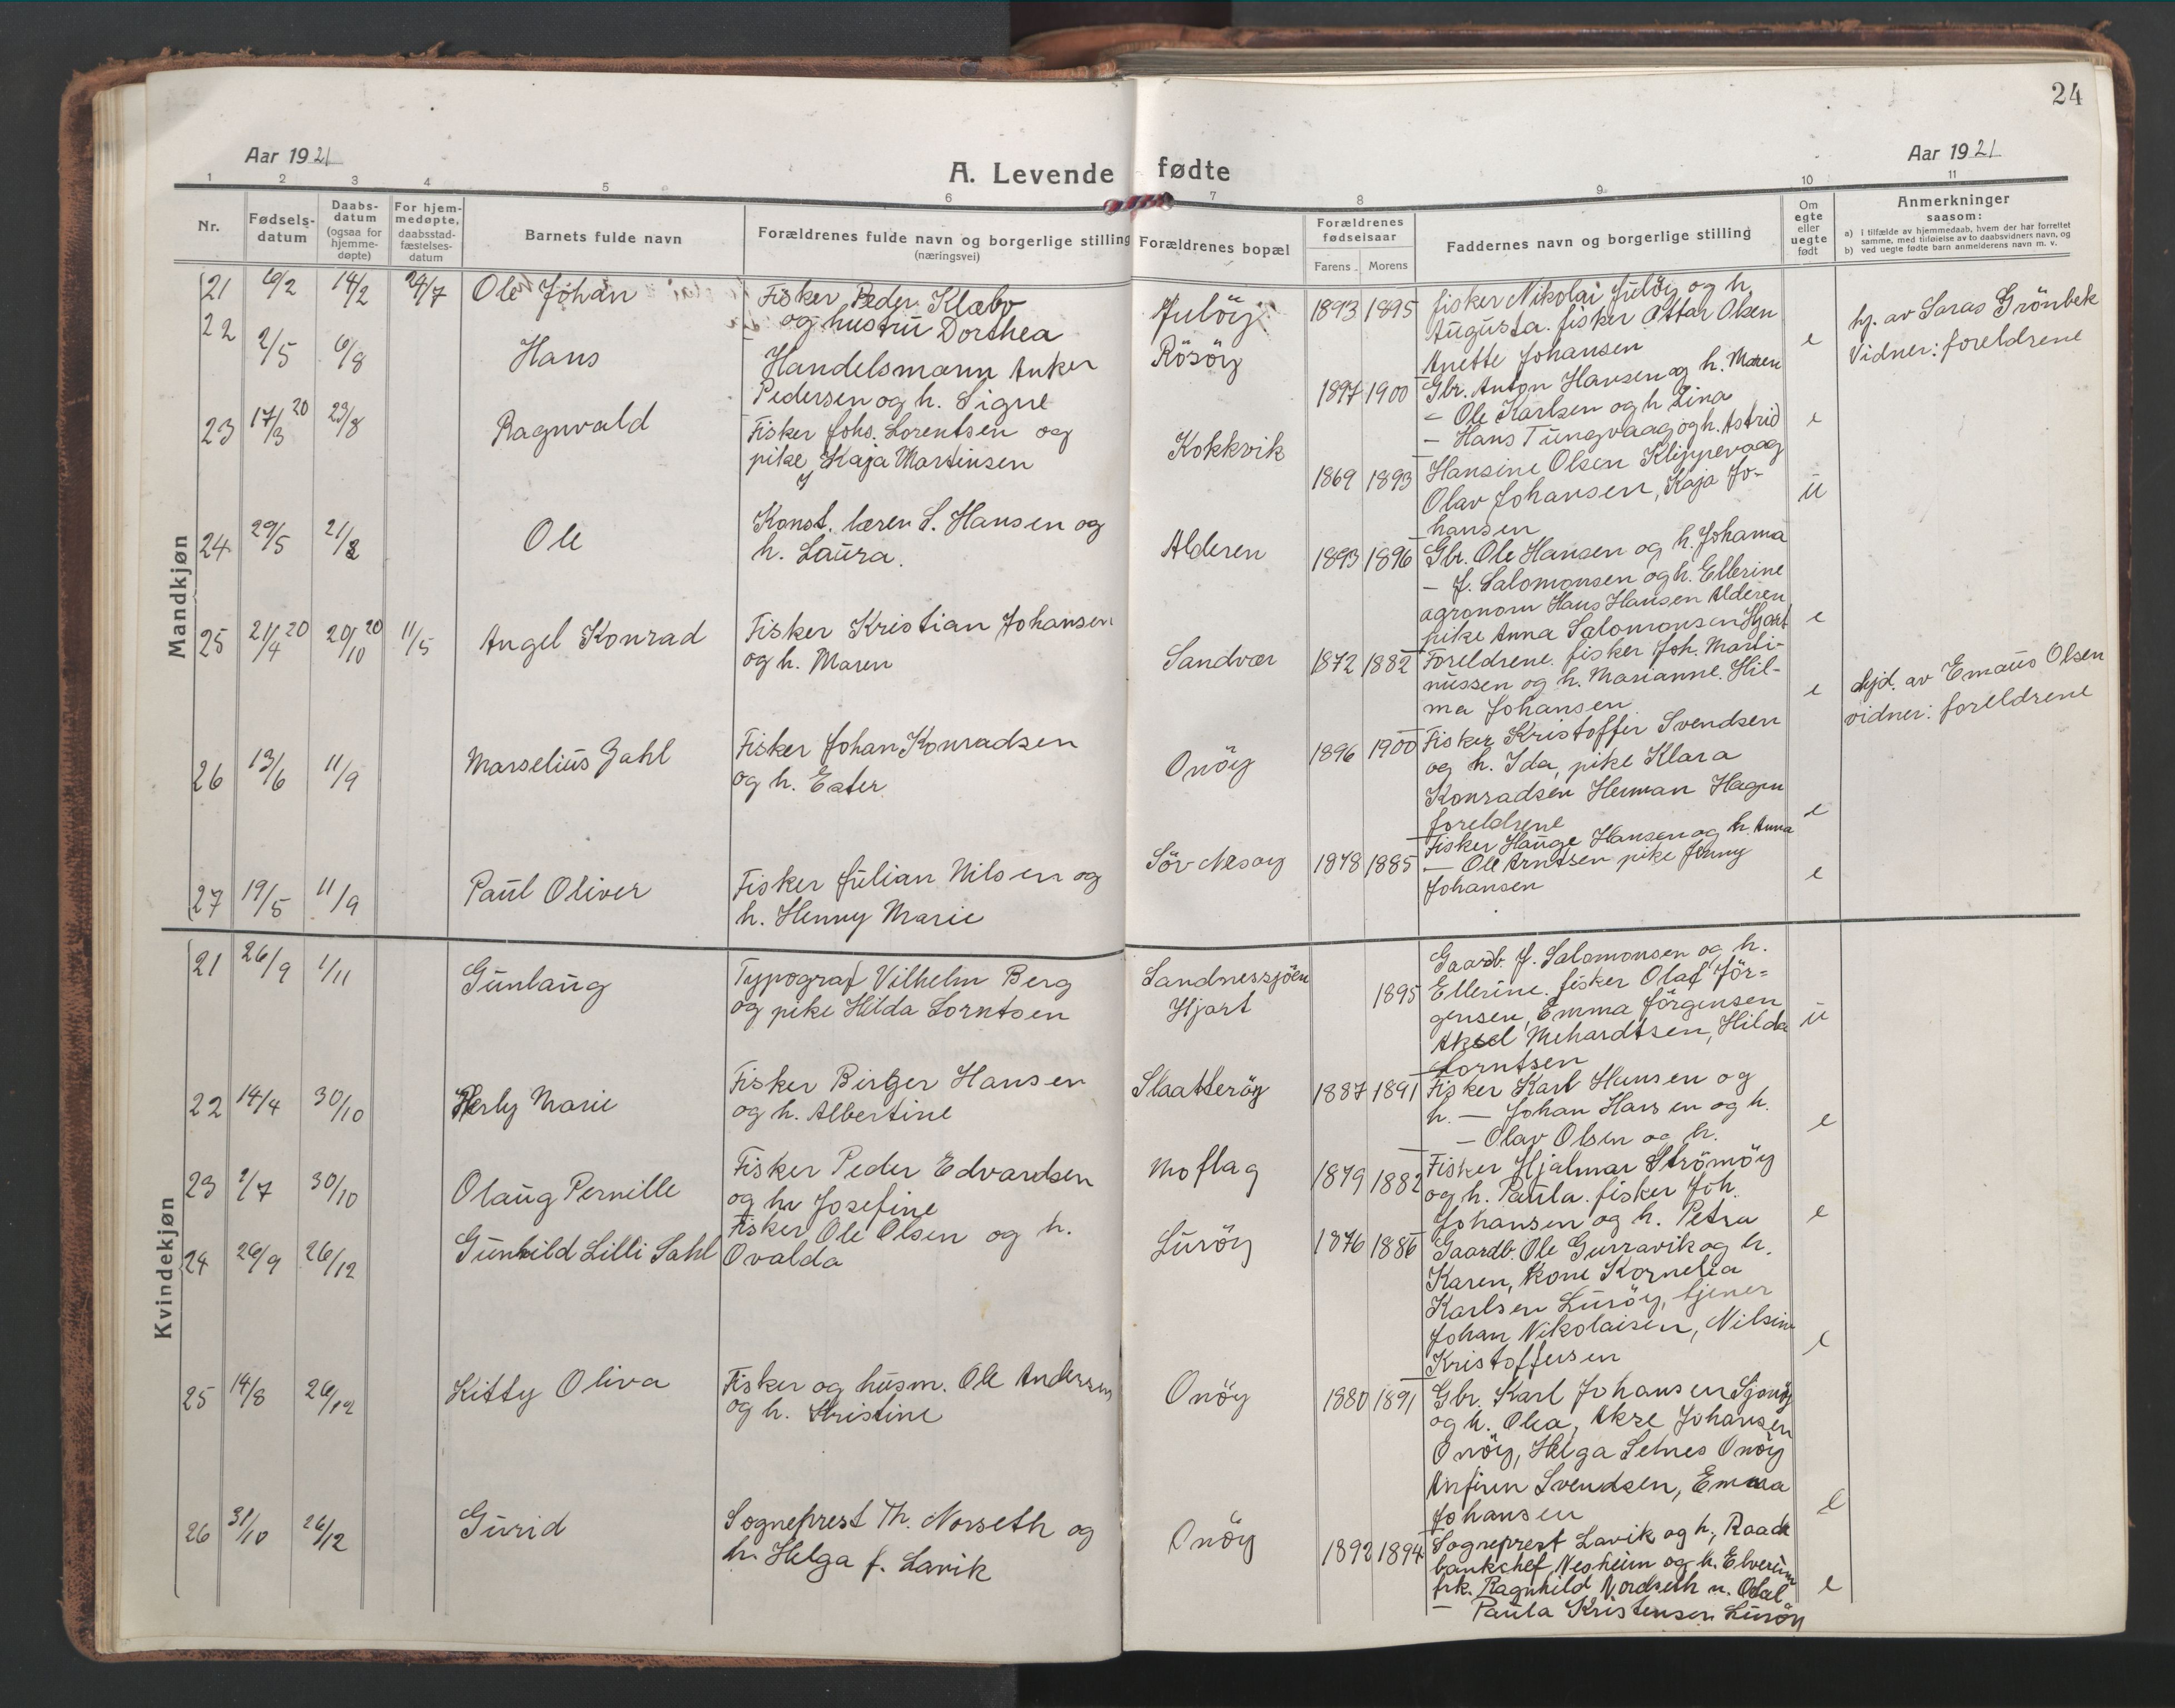 24
Aar 1921
A. Levende fødte
Aar 1921
1 2 3 4 5 6 7 8 9 10 11
Nr.
Fødsels-
datum
Daabs-
datum
(ogsaa for
hjemme-
døpte)
For hjem-
medøpte,
daabsstad-
fæstelses-
datum
Barnets fulde navn
Forældrenes fulde navn og borgerlige stilling
(næringsvei)
Forældrenes bopæl
Forældrenes
fødselsaar
Farens Morens
Faddernes navn og borgerlige stilling
Om
egte
eller
uegte
født
Anmerkninger
saasom:
a) i tilfælde av hjemmedaab, hvem der har forrettet
samme, med tilføielse av to daabsvidners navn, og
b) ved uegte fødte barn anmelderens navn m. v.
Mandkjøn
21 6/2 14/2 24/7 Ole Johan
Fisker Peder Klæbo
og hustru Dorthea
Juløy 1893 1895
fisker Nikolai Juløy og h.
Augusta. fisker Ottar Olsen
Anette Johansen
e
hj. av Saras Grönbek
Vidner: foreldrene
22 2/5 6/8 Hans
Handelsmann Anker
Pedersen og h. Signe
Rösöy 1897 1900
Gbr. Anton Hansen og h. Maren
- Ole Karlsen og h Lina
- Hans Tungvaag og h. Astrid
e
23 17/3 20 23/8 Ragnvald
Fisker Johs. Lorentsen og
pike Kaja Martinsen
Kokkvik 1869 1893
Hansine Olsen Klippevaag
Olav Johansen, Kaja Jo-
hansen
u
24 29/5 21/8 Ole
Konst. lærer S. Hansen og
h. Laura.
Alderen 1893 1896
Gbr. Ole Hansen og h. Johanna
- J. Salomonsen og h. Ellerine
agronom Hans Hansen Alderen
pike Anna Salomonsen Hjart
e
25 21/4 20 20/10 20 11/5 Angel Konrad
Fisker Kristian Johansen
og h. Maren
Sandvær 1872 1882
Foreldrene. fisker Joh. Marti-
nussen og h. Marianne. Hil-
ma Johansen
e
hjd. av Emaus Olsen
vidner: foreldrene
26 13/6 11/9 Marselius Zahl
Fisker Johan Konradsen
og h. Ester
Onöy 1896 1900
Fisker Kristoffer Svendsen
og h. Ida, pike Klara
Konradsen Herman Hagen
foreldrene
e
27 19/5 11/9 Paul Oliver
Fisker Julian Nilsen og
h. Henny Marie
Sör Nesöy 1878 1885
Fisker Hauge Hansen og h. Anna
- Ole Arntsen pike Jenny
Johansen
e
Kvindekjøn
21 26/9 1/11 Gunlaug
Typograf Vilhelm Berg
og pike Hilda Lorntsen
Sandnessjöen
Hjart
1895
Gaardb. J. Salomonsen og h.
Ellerine. fisker Olaf Jör-
gensen, Emma Jörgensen
Aksel Mehardtsen, Hilda
Lorntsen
u
22 14/4 30/10 Herly Marie
Fisker Birger Hansen
og h. Albertine
Slaatteröy 1887 1891
Fisker Karl Hansen og
h. - Johan Hansen og h.
- Olav Olsen og h.
e
23 1/7 30/10 Olaug Pernille
Fisker Peder Edvardsen
og h. Josefine
Moflag 1879 1882
Fisker Hjalmar Strömöy
og h. Paula. fisker Joh.
Johansen og h. Petra
e
24 26/9 26/12 Gunhild Lilli Sahl
Fisker Ole Olsen og h.
Ovalda
Luröy 1876 1886
Gaardb. Ole Gurravik og h.
Karen, kone Kornelia
Karlsen Luröy, tjener
Johan Nikolaisen, Nilsine
Kristoffersen
e
25 14/8 26/12 Kitty Oliva
Fisker og husm. Ole Andersen
og h. Kristine
Onöy 1880 1891
Gbr. Karl Johansen Sjonöy
og h. Olea, Akse Johansen
Onöy, Helga Selnes Onöy
Anfinn Svendsen, Emma
Johansen
e
26 31/10 26/12 Gurid
Sogneprest Th. Norseth og
h. Helga f. Lavik
Onöy 1892 1894
Sogneprest Lavik og h., Raade
bankchef Nesheim og h. Elverum
frk. Ragnhild Nordseth n. Odal
- Paula Kristensen Luröy
e